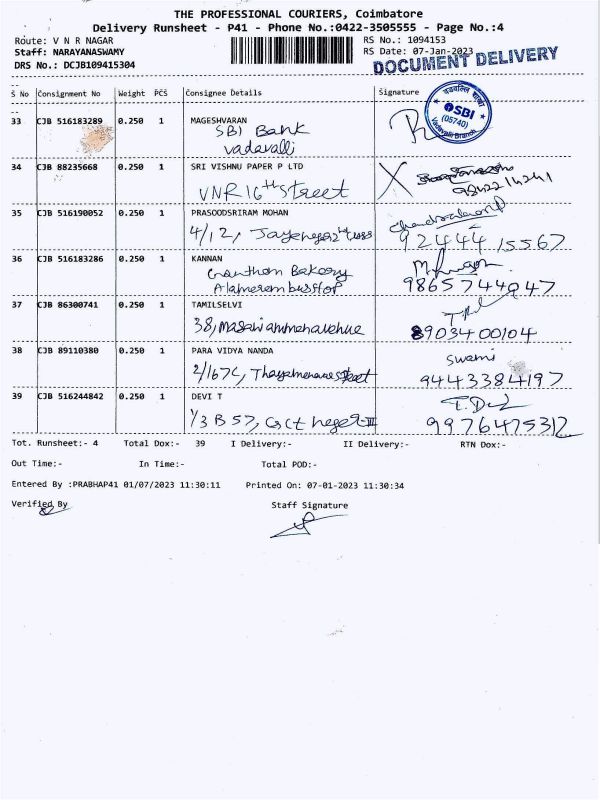 THE PROFESSIONAL COURIERS, Coimbatore
Delivery Runsheet - P41 - Phone No.:0422-3505555 - Page No.:4
Route: V N R NAGAR RS No.: 1094153
Staff: NARAYANASWAMY RS Date: 07-Jan-2023
DRS No.: DCJB109415304 DOCUMENT DELIVERY
S No Consignment No Weight PCS Consignee Details Signature
33 CJB 516183289 0.250 1 MAGESHVARAN
SBI Bank
vadavalli
SBI
(05740)
Vadavalli Branch
34 CJB 88235668 0.250 1 SRI VISHNU PAPER P LTD
VNR 16th street
9842214241
35 CJB 516190052 0.250 1 PRASOODSRIRAM MOHAN
4/12, 92444 15567
36 CJB 516183286 0.250 1 KANNAN
Bakery
9865744947
37 CJB 86300741 0.250 1 TAMILSELVI
38, 8903400104
38 CJB 89110380 0.250 1 PARA VIDYA NANDA
Swami
2/167C, 9443384197
39 CJB 516244842 0.250 1 DEVI T
1/3 B 57, 9976475312
Tot. Runsheet:- 4 Total Dox:- 39 I Delivery:- II Delivery:- RTN Dox:-
Out Time:- In Time:- Total POD:-
Entered By :PRABHAP41 01/07/2023 11:30:11 Printed On: 07-01-2023 11:30:34
Verified By Staff Signature